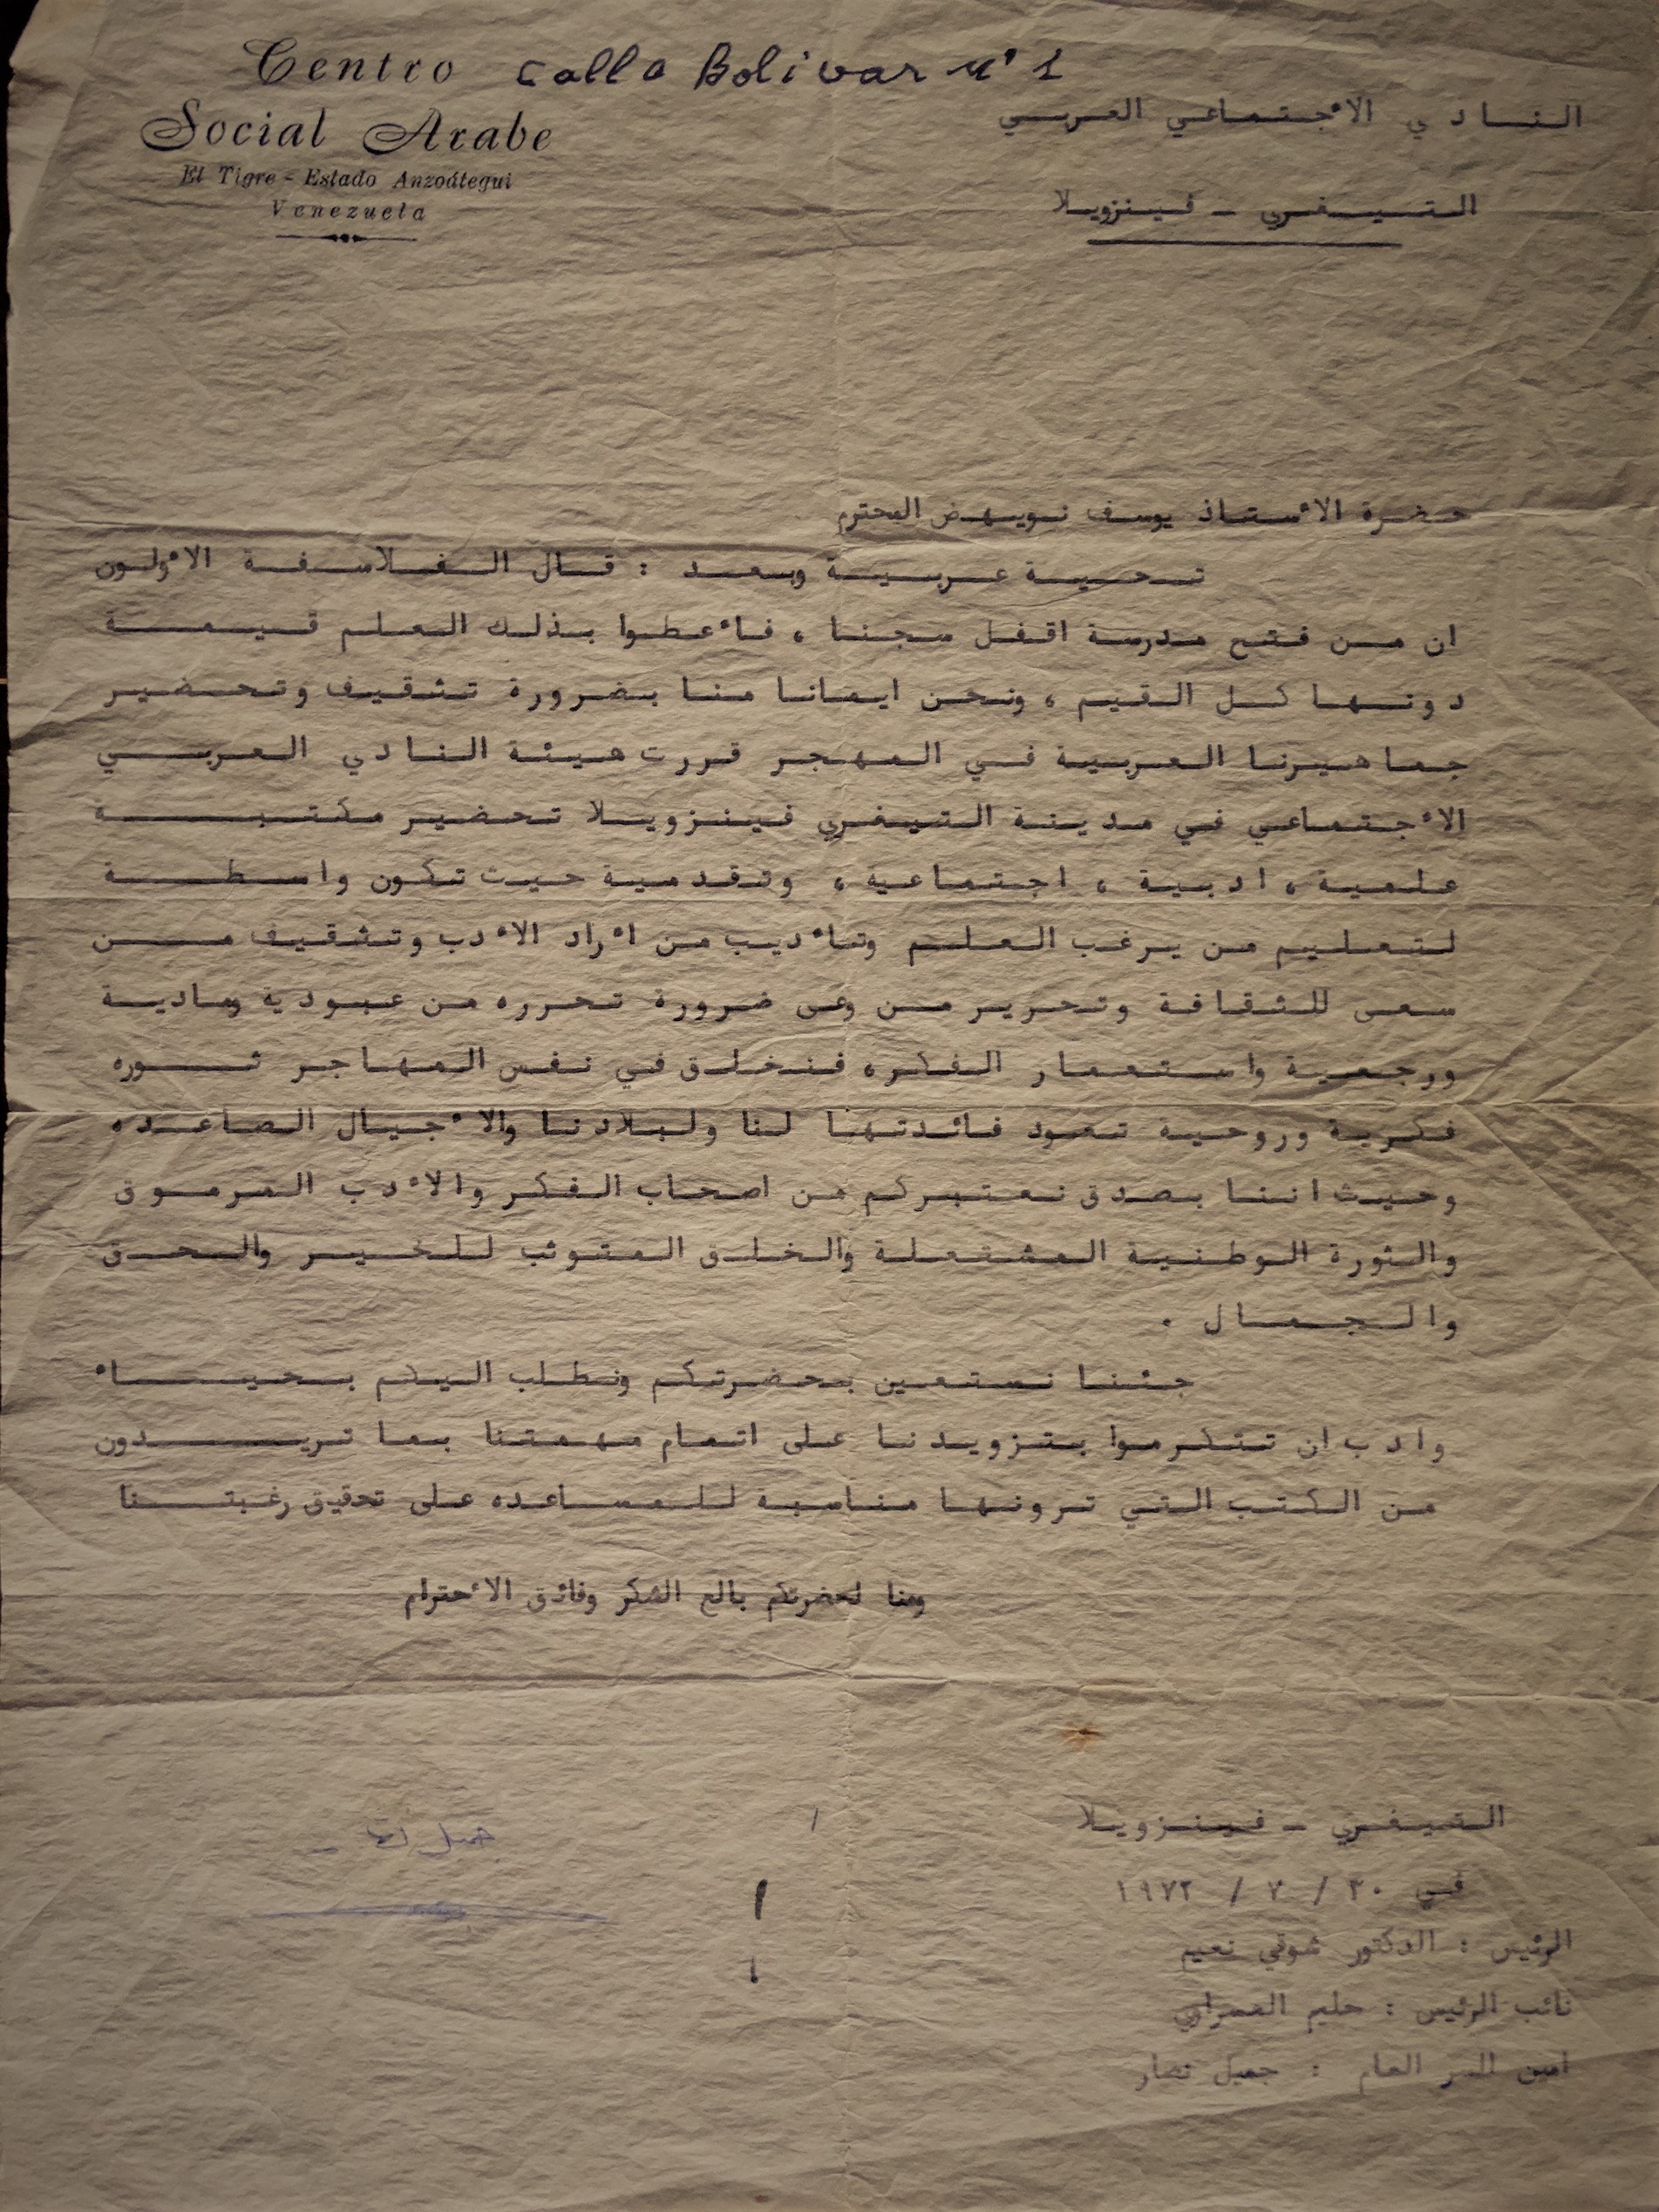 Centro Calle Bolivar Nº 1
Social Arabe
El Tigre - Estado Anzoátegui
Venezuela
النادي الاجتماعي العربي
التيغري - فينزويلا
حضرة الأستاذ يوسف نويهض المحترم
تحية عربية وبعد : قال الفلاسفة الأولون
ان من فتح مدرسة اقفل سجنا ، فأعطوا بذلك العلم قيمة
دونها كل القيم ، ونحن ايمانا منا بضرورة تثقيف وتحضير
جماهيرنا العربية في المهجر قررت هيئة النادي العربي
الأجتماعي في مدينة التيغري فينزويلا تحضير مكتبة
علمية ، ادبية ، اجتماعيه ، وتقدمية حيث تكون واسطة
لتعليم من يرغب العلم وتأديب من أراد الأدب وتثقيف من
سعى للثقافة وتحرير من وعى ضرورة تحرره من عبودية ومادية
ورجعية واستعمار الفكره فنخلق في نفس المهاجر ثوره
فكرية وروحية تعود فائدتها لنا ولبلادنا والأجيال الصاعده
وحيث اننا بصدق نعتبركم من اصحاب الفكر والأدب المرموق
والثورة الوطنية المشتعلة والخلق المتوثب للخير والحق
والجمال .
جئنا نستعين بحضرتكم ونطلب اليكم بحياء
وادب ان تتكرموا بتزويدنا على اتمام مهمتنا بما تريدون
من الكتب التي ترونها مناسبة للمساعده على تحقيق رغبتنا
ومنا لحضرتكم بالغ الشكر وفائق الأحترام
التيغري - فينزويلا
في ٣٠ / ٧ / ١٩٧٢
جميل نصار
الرئيس : الدكتور شوقي نعيم
نائب الرئيس : حليم العمراوي
امين السر العام : جميل نصار